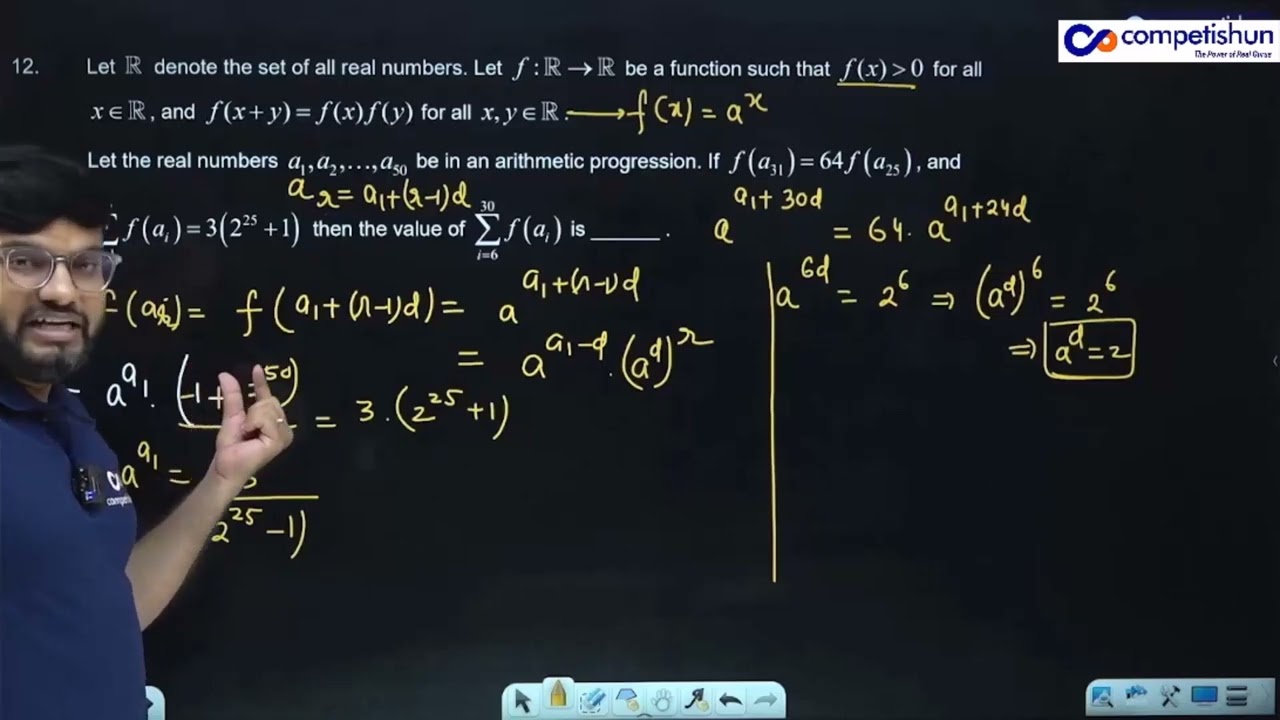 competishun
The Power of Real Gurus
12. Let ℝ denote the set of all real numbers. Let f : ℝ → ℝ be a function such that f(x) > 0 for all
x ∈ ℝ, and f(x+y) = f(x)f(y) for all x, y ∈ ℝ. ⟶ f(x) = a^x
Let the real numbers a₁, a₂,…, a₅₀ be in an arithmetic progression. If f(a₃₁) = 64f(a₂₅), and
a_r = a₁+(r-1)d
f(a_i) = 3(2^25 + 1) then the value of ∑_{i=6}^{30} f(a_i) is ______.
a^{a₁+30d} = 64. a^{a₁+24d}
f(a_r) = f(a₁+(r-1)d) = a^{a₁+(r-1)d}
= a^{a₁-d}.(a^d)^r
a^{6d} = 2^6 ⇒ (a^d)^6 = 2^6
⇒ a^d = 2
a^{a₁}. = 3.(2^25 + 1)
a^{a₁} =
2^25 - 1)